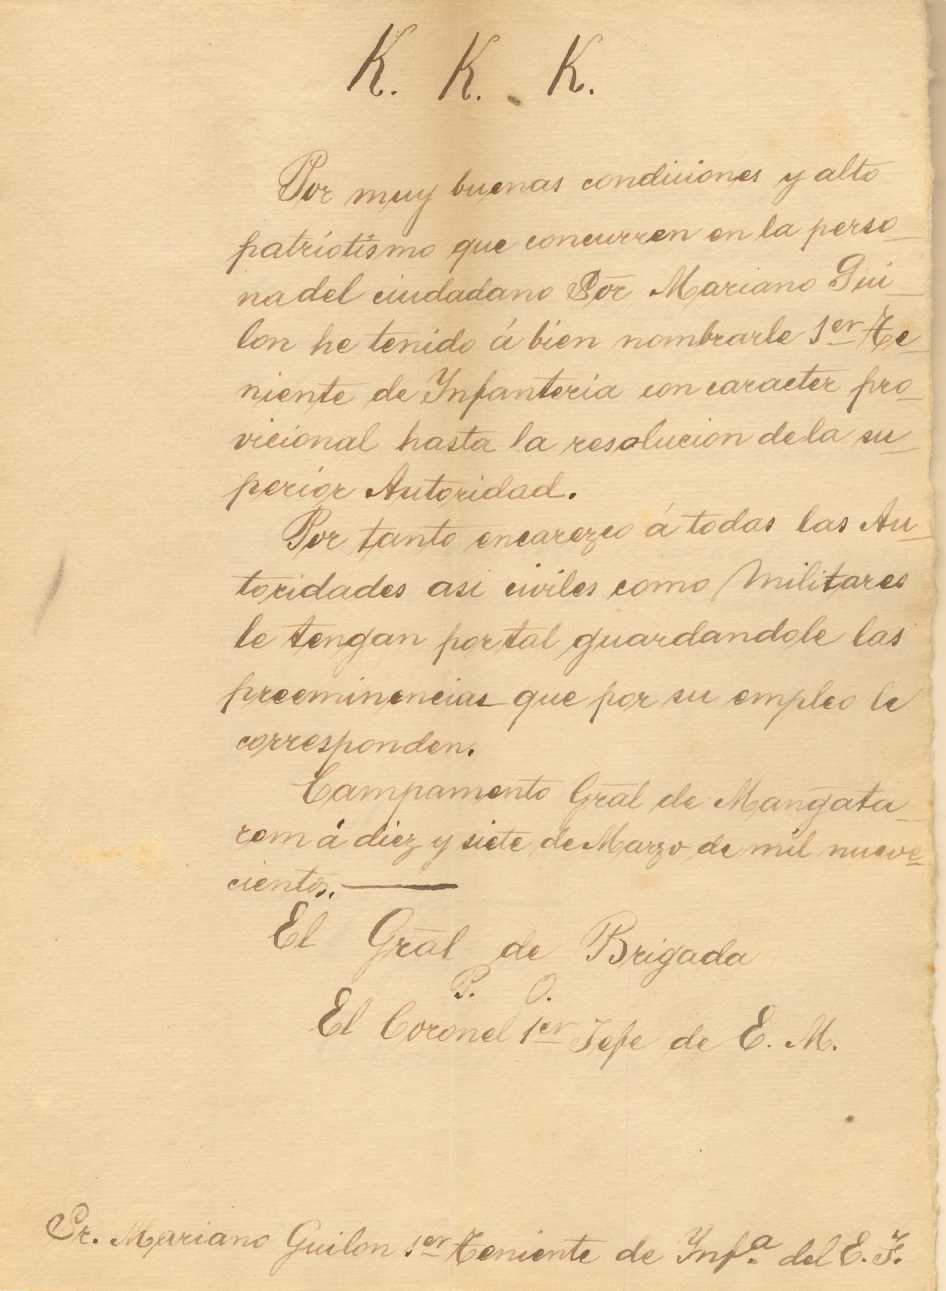 K. K. K.
Por muy buenas condiciones y alto
patriotismo que concurren en la perso_
na del ciudadano Sor̄ Mariano Gui_
lon he tenido á bien nombrarle 1er Te_
niente de Ynfanteria con caracter pro_
vicional hasta la resolucion de la su_
perior Autoridad.
Por tanto encarezco á todas las Au_
toridades asi civiles como Militares
le tengan por tal guardandole las
preeminencias que por su empleo le
corresponden.
Campamento Gral de Mangata_
rem á diez y siete de Marzo de mil nueve_
cientos.
El Gral de Brigada
P. O.
El Coronel 1er Jefe de E. M.
Sr. Mariano Guilon 1er Teniente de Ynf.a del E. F.